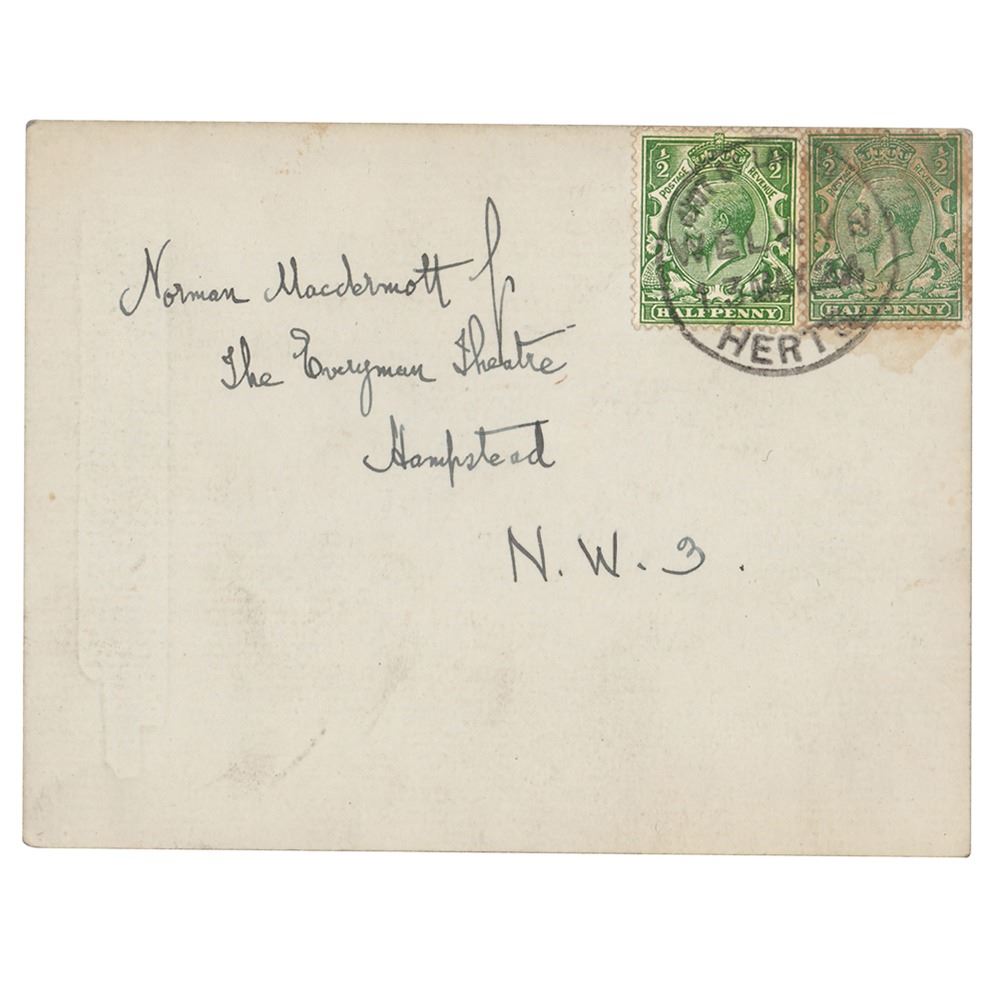 Norman Macdermott
The Everyman Theatre
Hampstead
N. W. 3.
½ ½
POSTAGE REVENUE
HALFPENNY
½ ½
POSTAGE REVENUE
HALFPENNY
WELWYN
MAY 24
HERTS